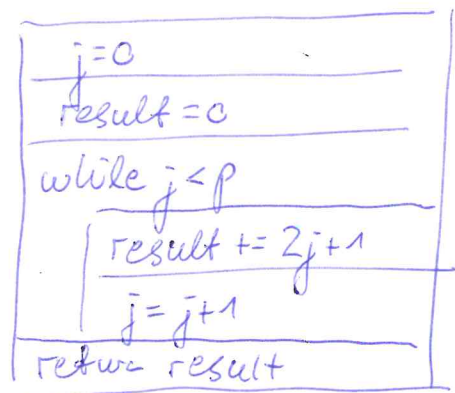 j=0
result=0
while j<p
result += 2j+1
j=j+1
return result